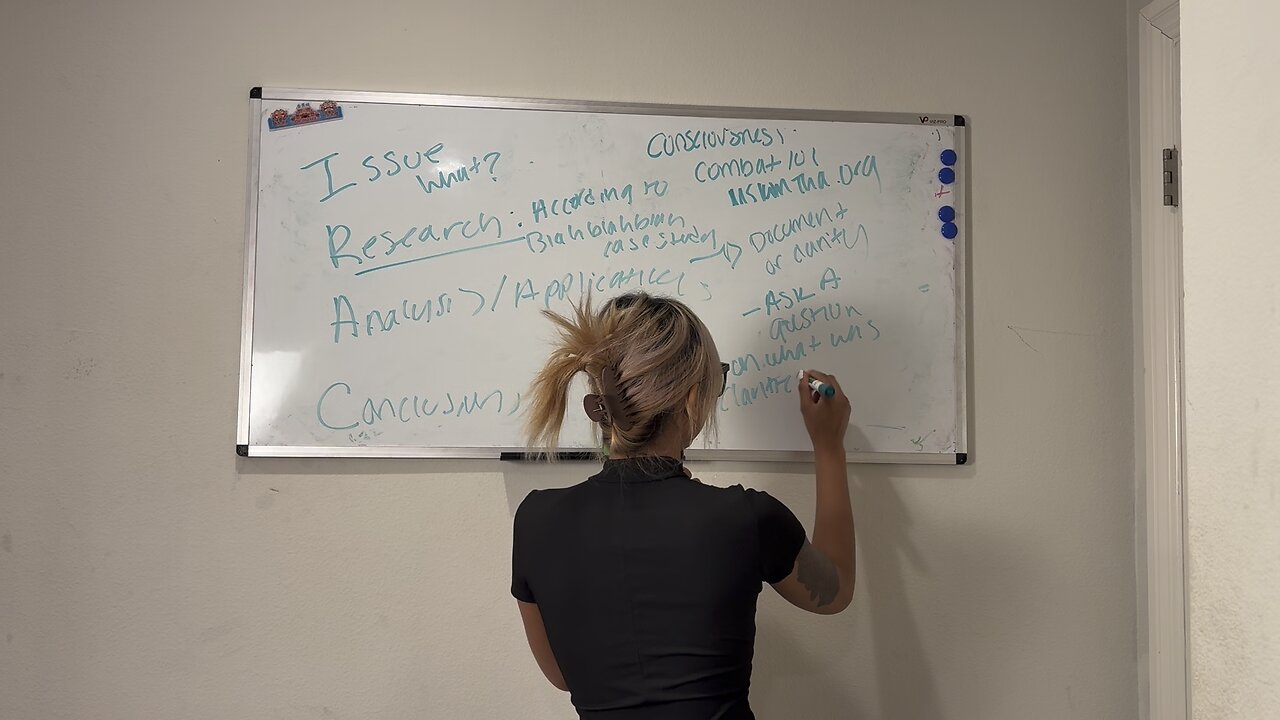 Issue
What?
Research: According to
Blahblahblah
case study
Analysis/Application
Conclusion
Consciousness,
combat 101
Document
or clarity
- Ask A
question
on what was
VIZ-PRO